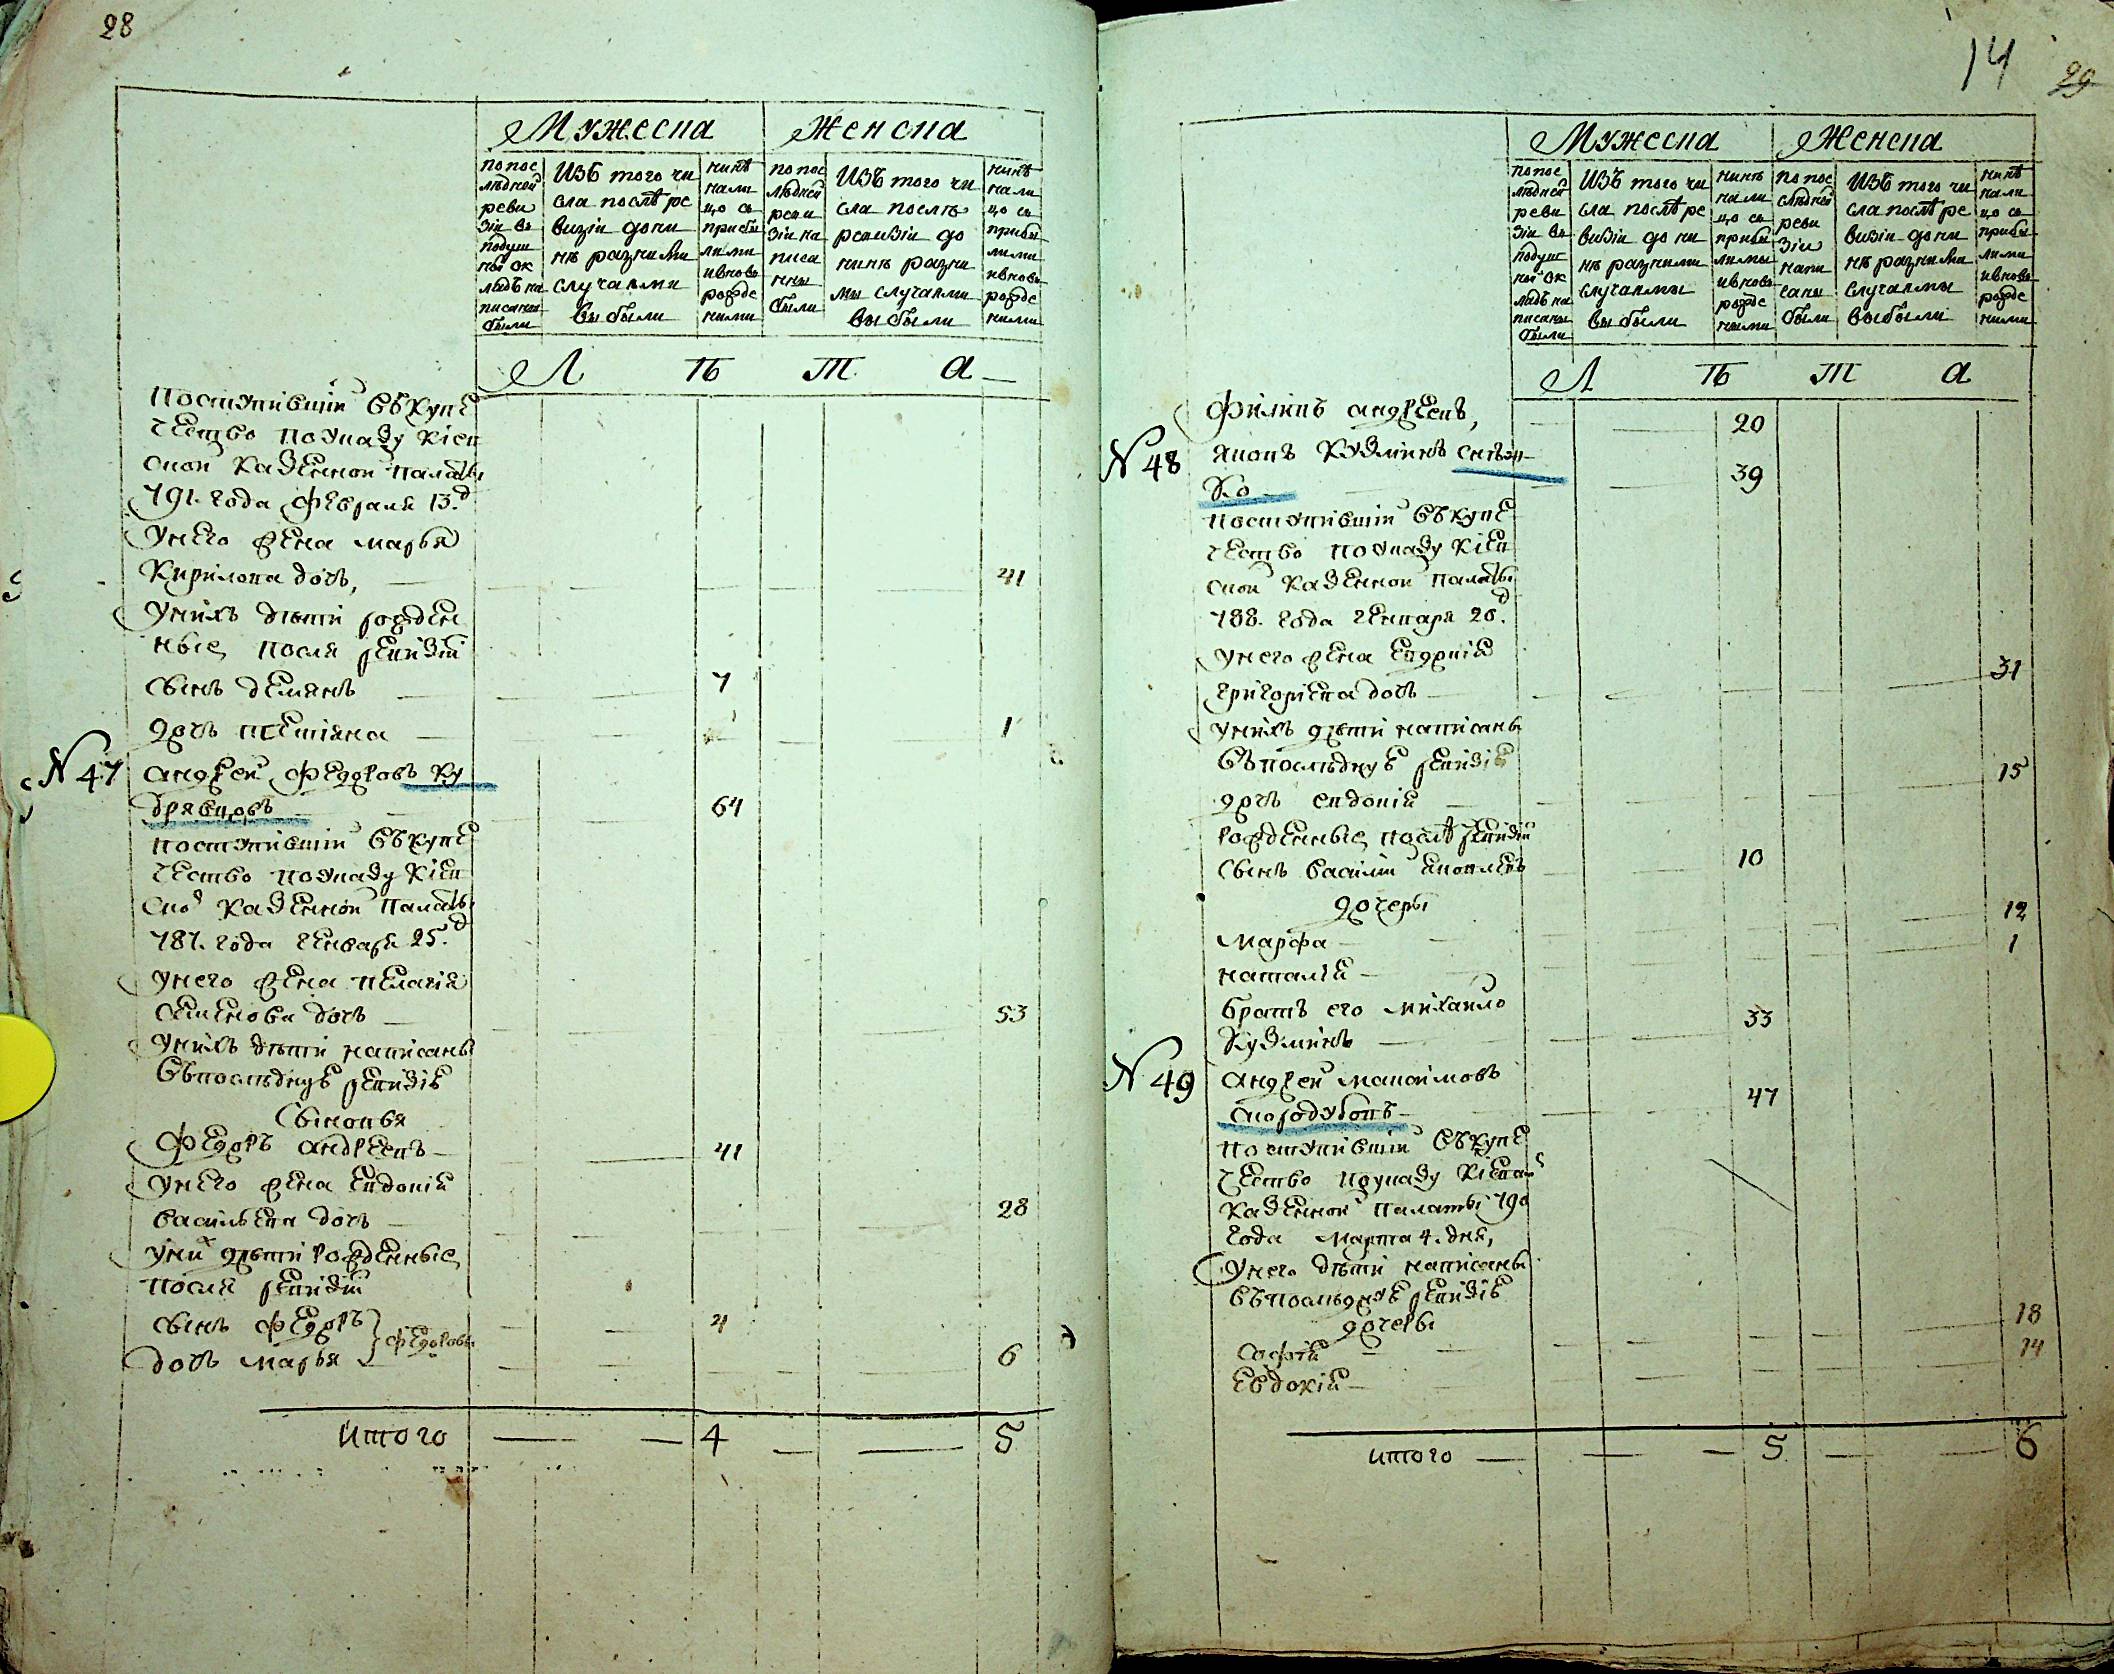 28
Мужеска
Женска
по пос
лѣдней
реви
зіи въ
подуш
ный ок
ладъ на
писаны
были
Изъ того чи
сла послѣ ре
визіи до ны
нѣ разними
случаями
выбыли
нинѣ
нали
цо съ
прибы
лими
и вновь
рожде
ними
по пос
лѣдней
реви
зіи на
писа
ны
были
Изъ того чи
сла послѣ
ревизіи до
нинѣ разни
мы случаями
выбыли
нинѣ
нали
цо съ
прибы
лими
и вновь
рожде
ними
Л Ѣ Т А
Поступившій въ купе
чество по указу Кіев
ской казенной палаты
791. года февраля 13.д
У него жена Марья
Кирилова дочь, 41
У нихъ дѣти рожден
ные после ревизіи
сынъ Демянъ 7
дочь Тетіяна 1
N 47 Андрей Федоровъ Ку
дрявцовъ 64
Поступившій въ купе
чество по указу Кіев
ской казенной палаты
787. года генваря 25.д
У него жена Пелагія
Семенова дочь 53
У нихъ дѣти написаны
въ последнуе ревизіе
Сыновья
Федоръ Андреевъ 41
У него жена Евдокія
Васильева дочь 28
У них дѣти рожденные
после ревизіи
сынъ Федоръ 4
дочь Марья Федоровы 6
Итого 4 5
14
29
Мужеска
Женска
по пос
лѣдней
реви
зіи въ
подуш
ный ок
ладъ на
писаны
были
Изъ того чи
сла послѣ ре
визіи до ни
нѣ разними
случаямы
выбыли
нинѣ
нали
цо съ
прибы
лимы
и вновь
рожде
ными
по пос
слѣдней
реви
зіи
напи
саны
были
Изъ того чи
сла послѣ ре
визіи до ни
нѣ разними
случаямы
выбыли
нинѣ
нали
цо съ
прибы
лими
и вновь
рожде
ними
Л Ѣ Т А
Филипъ Андреевъ, 20
N 48 Яковъ Кузминъ
ко 39
Поступившій въ купе
чество по указу Кіев
ской казенной палаты
788. года генваря 26.д
У него жена Евдокія
Григоріева дочь 31
У нихъ дѣти написаны
въ последнуе ревизіе
дочь Евдокія 15
рожденные послѣ ревизіи
сынъ Василій Яковлевъ 10
дочеры
Марфа 12
Наталія 1
братъ его Михайло
Кузминъ 33
N 49 Андрей Макسимовъ
Скородубовъ 47
Поступившій въ купе
чество по указу Кіевской
казенной палаты 790
года марта 4. дня,
У него дѣти написаны
въ последнуе ревизіе
дочеры
Софія 18
Евдокія 14
Итого 5 6